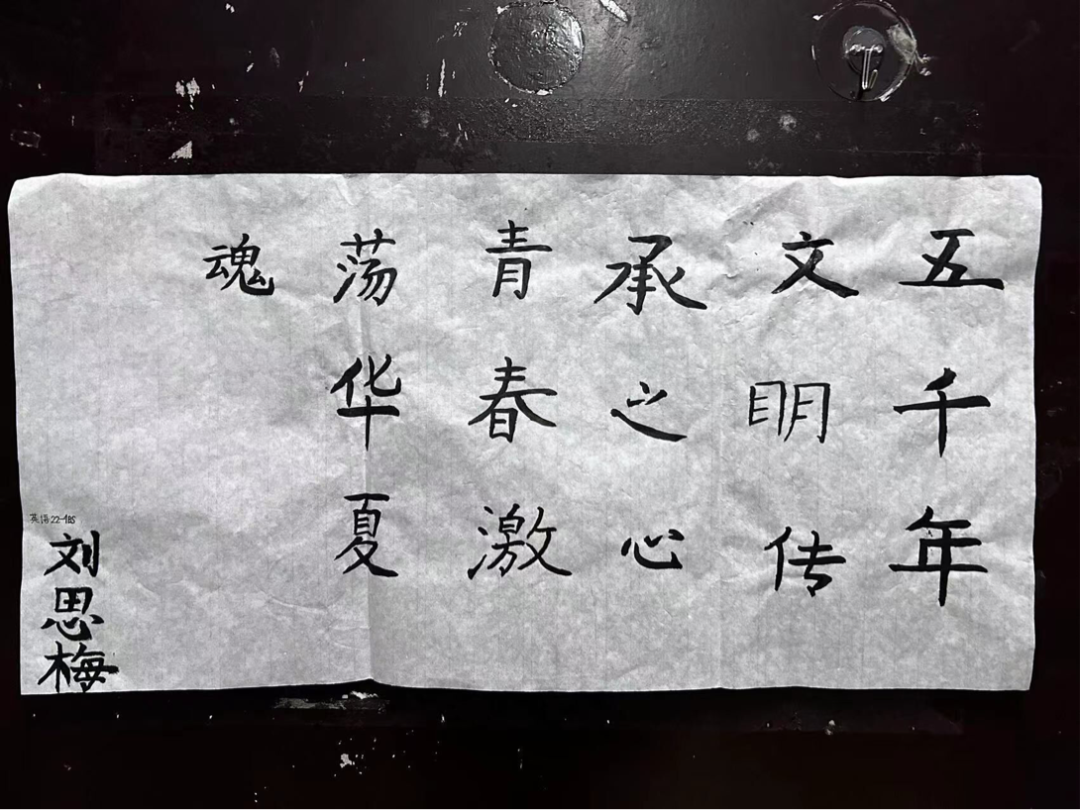 五千年
文明传
承之心
青春激
荡华夏
魂
英语22-185
刘思梅